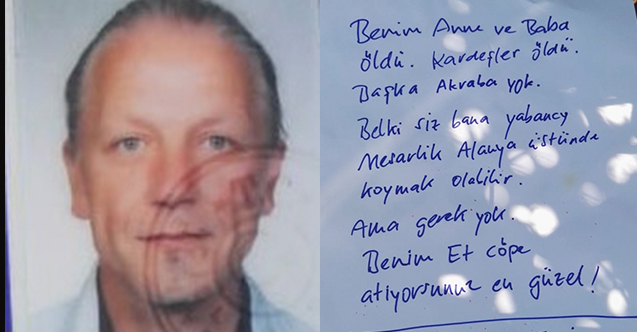 Benim Anne ve Baba
öldü. Kardeşler öldü.
Başka Akraba yok.
Belki siz bana yabancy
Mesarlik Alanya üstünde
koymak olabilir.
Ama gerek yok.
Benim Et çöpe
atiyorsunuz en güzel!